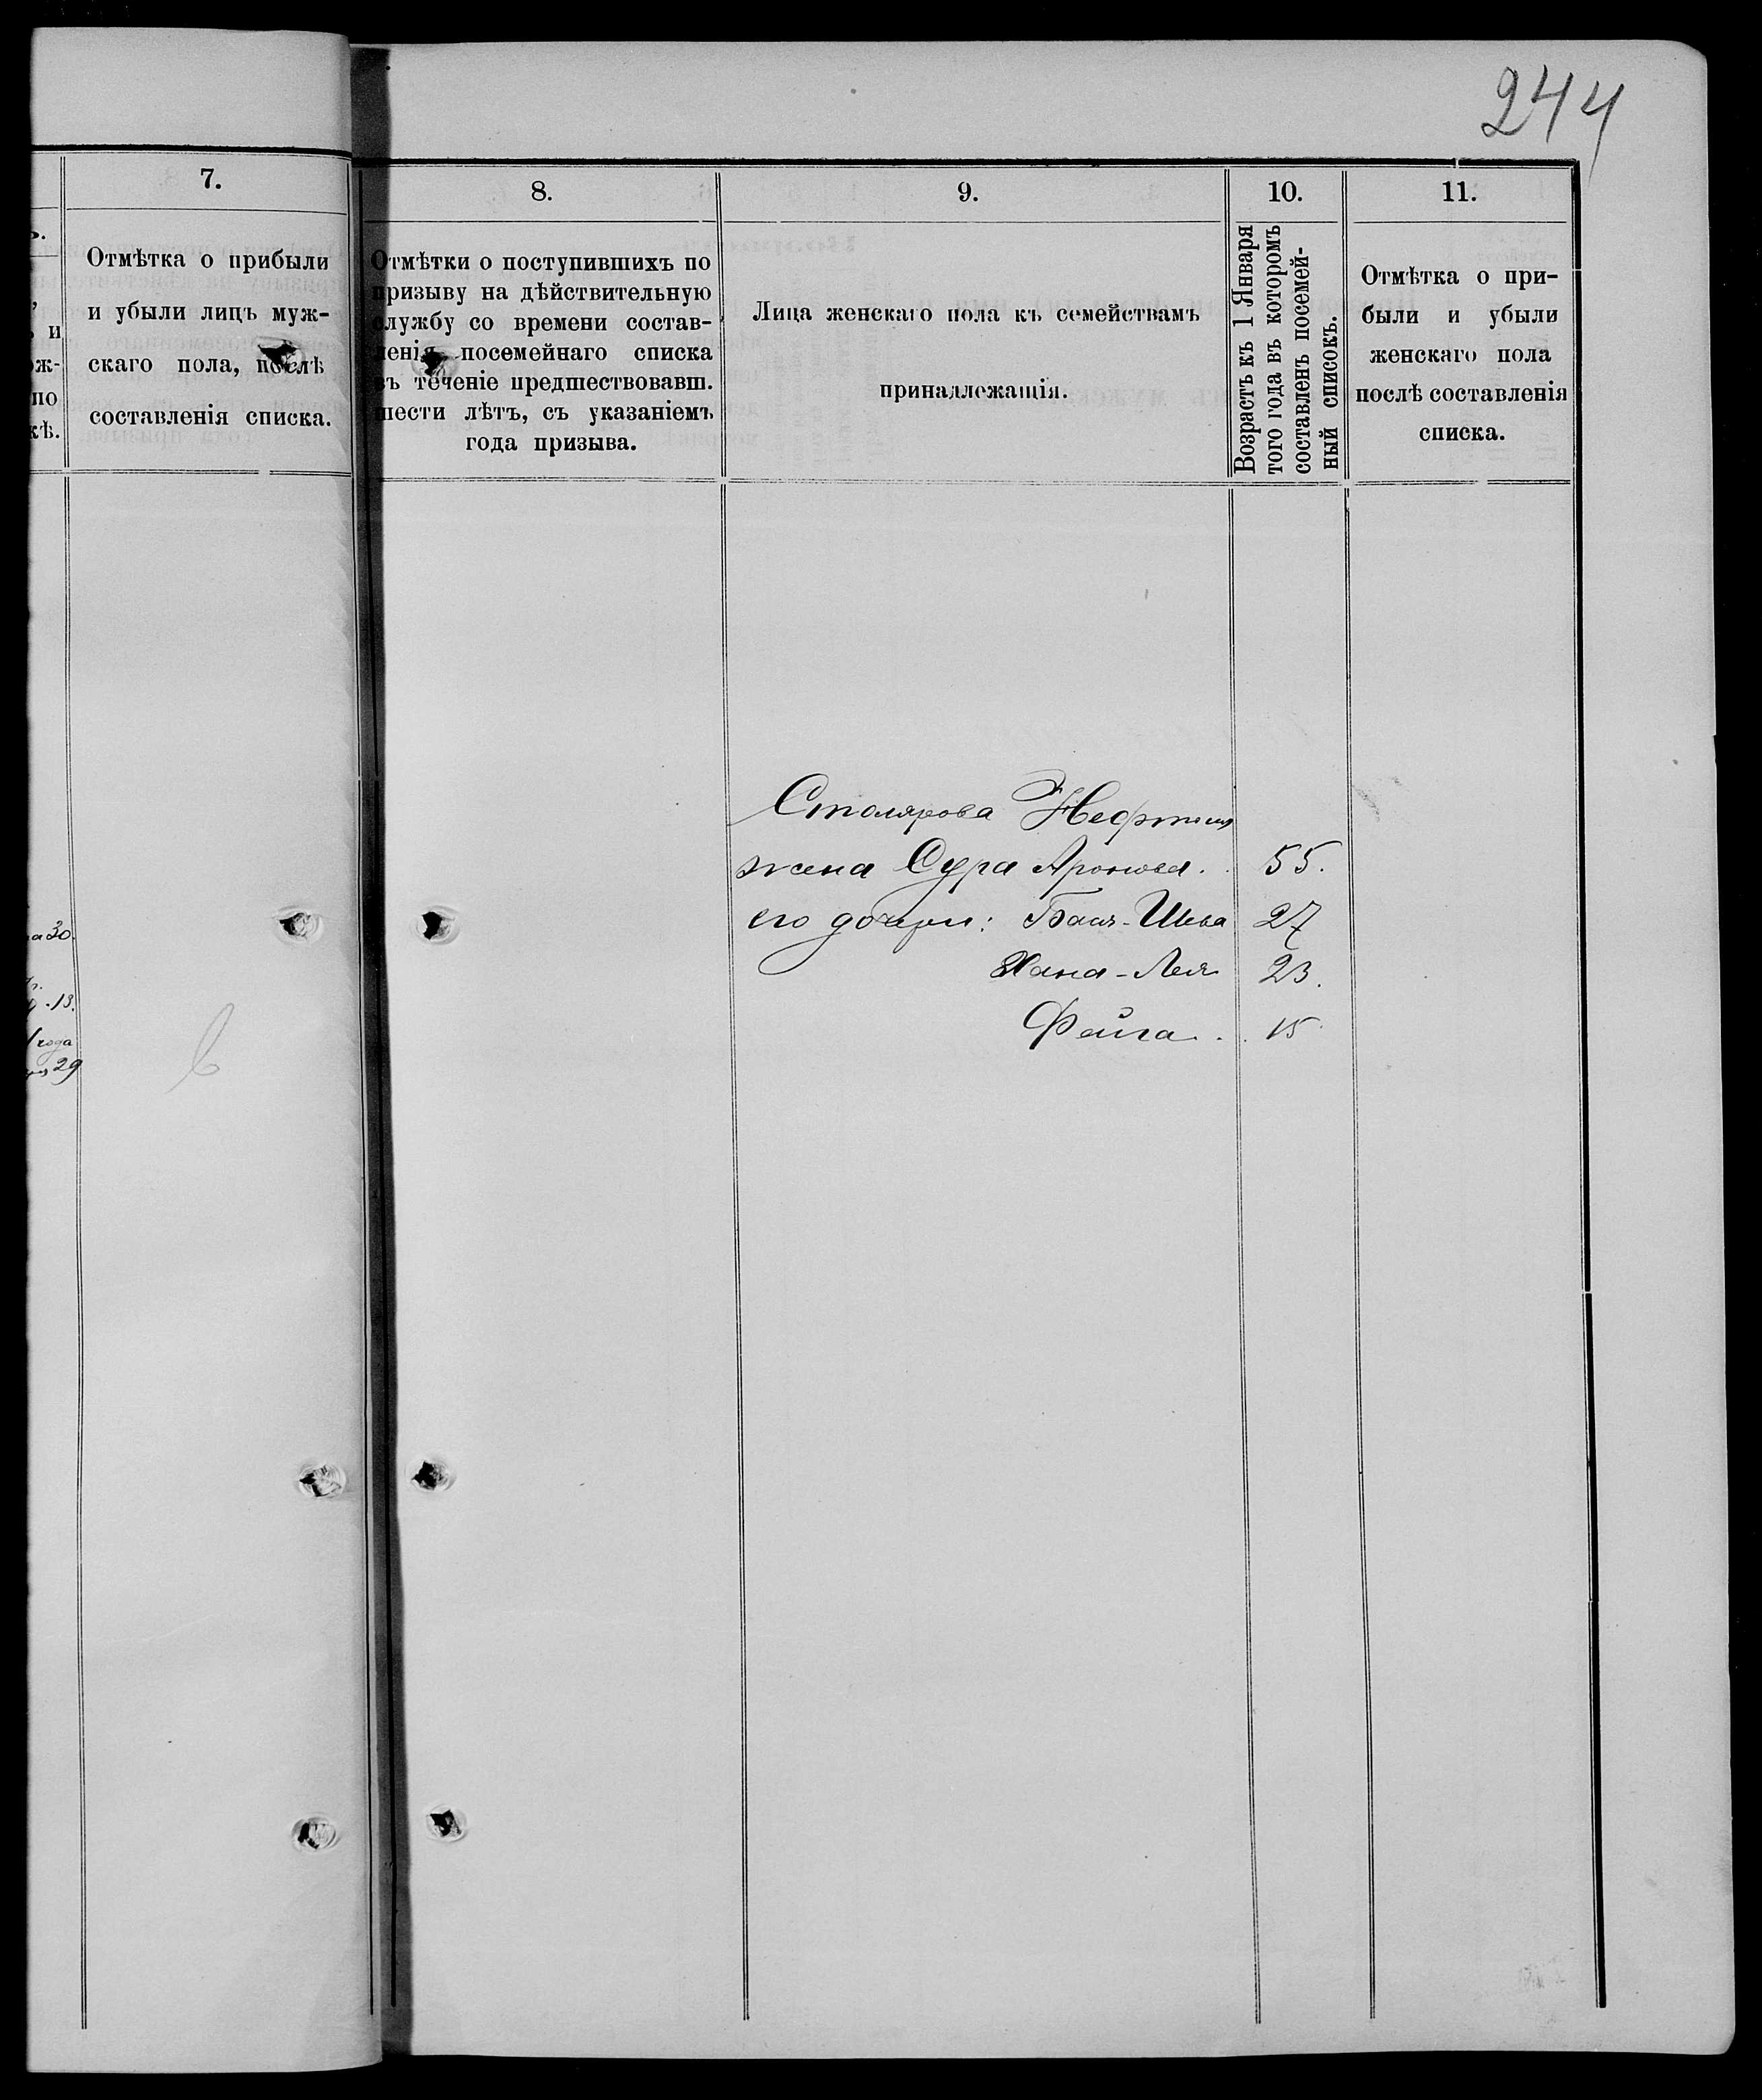 244
7.
8.
9.
10.
11.
ъ.
и
ож-
по
кѣ.
Отмѣтка о прибыли
и убыли лицъ муж-
скаго пола, послѣ
составленія списка.
Отмѣтки о поступившихъ по
призыву на дѣйствительную
службу со времени состав-
ленія посемейнаго списка
въ теченіе предшествовавш.
шести лѣтъ, съ указаніемъ
года призыва.
Лица женскаго пола къ семействамъ
принадлежащія.
Возрастъ къ 1 Января
того года въ которомъ
составленъ посемей-
ный списокъ.
Отмѣтка о при-
были и убыли
женскаго пола
послѣ составленія
списка.
Столярова
жена Сура Аронова . 55.
его дочери: Бася-Шева 27
Хана-Лея 23.
Фейга . 15
30.
13.
года
29